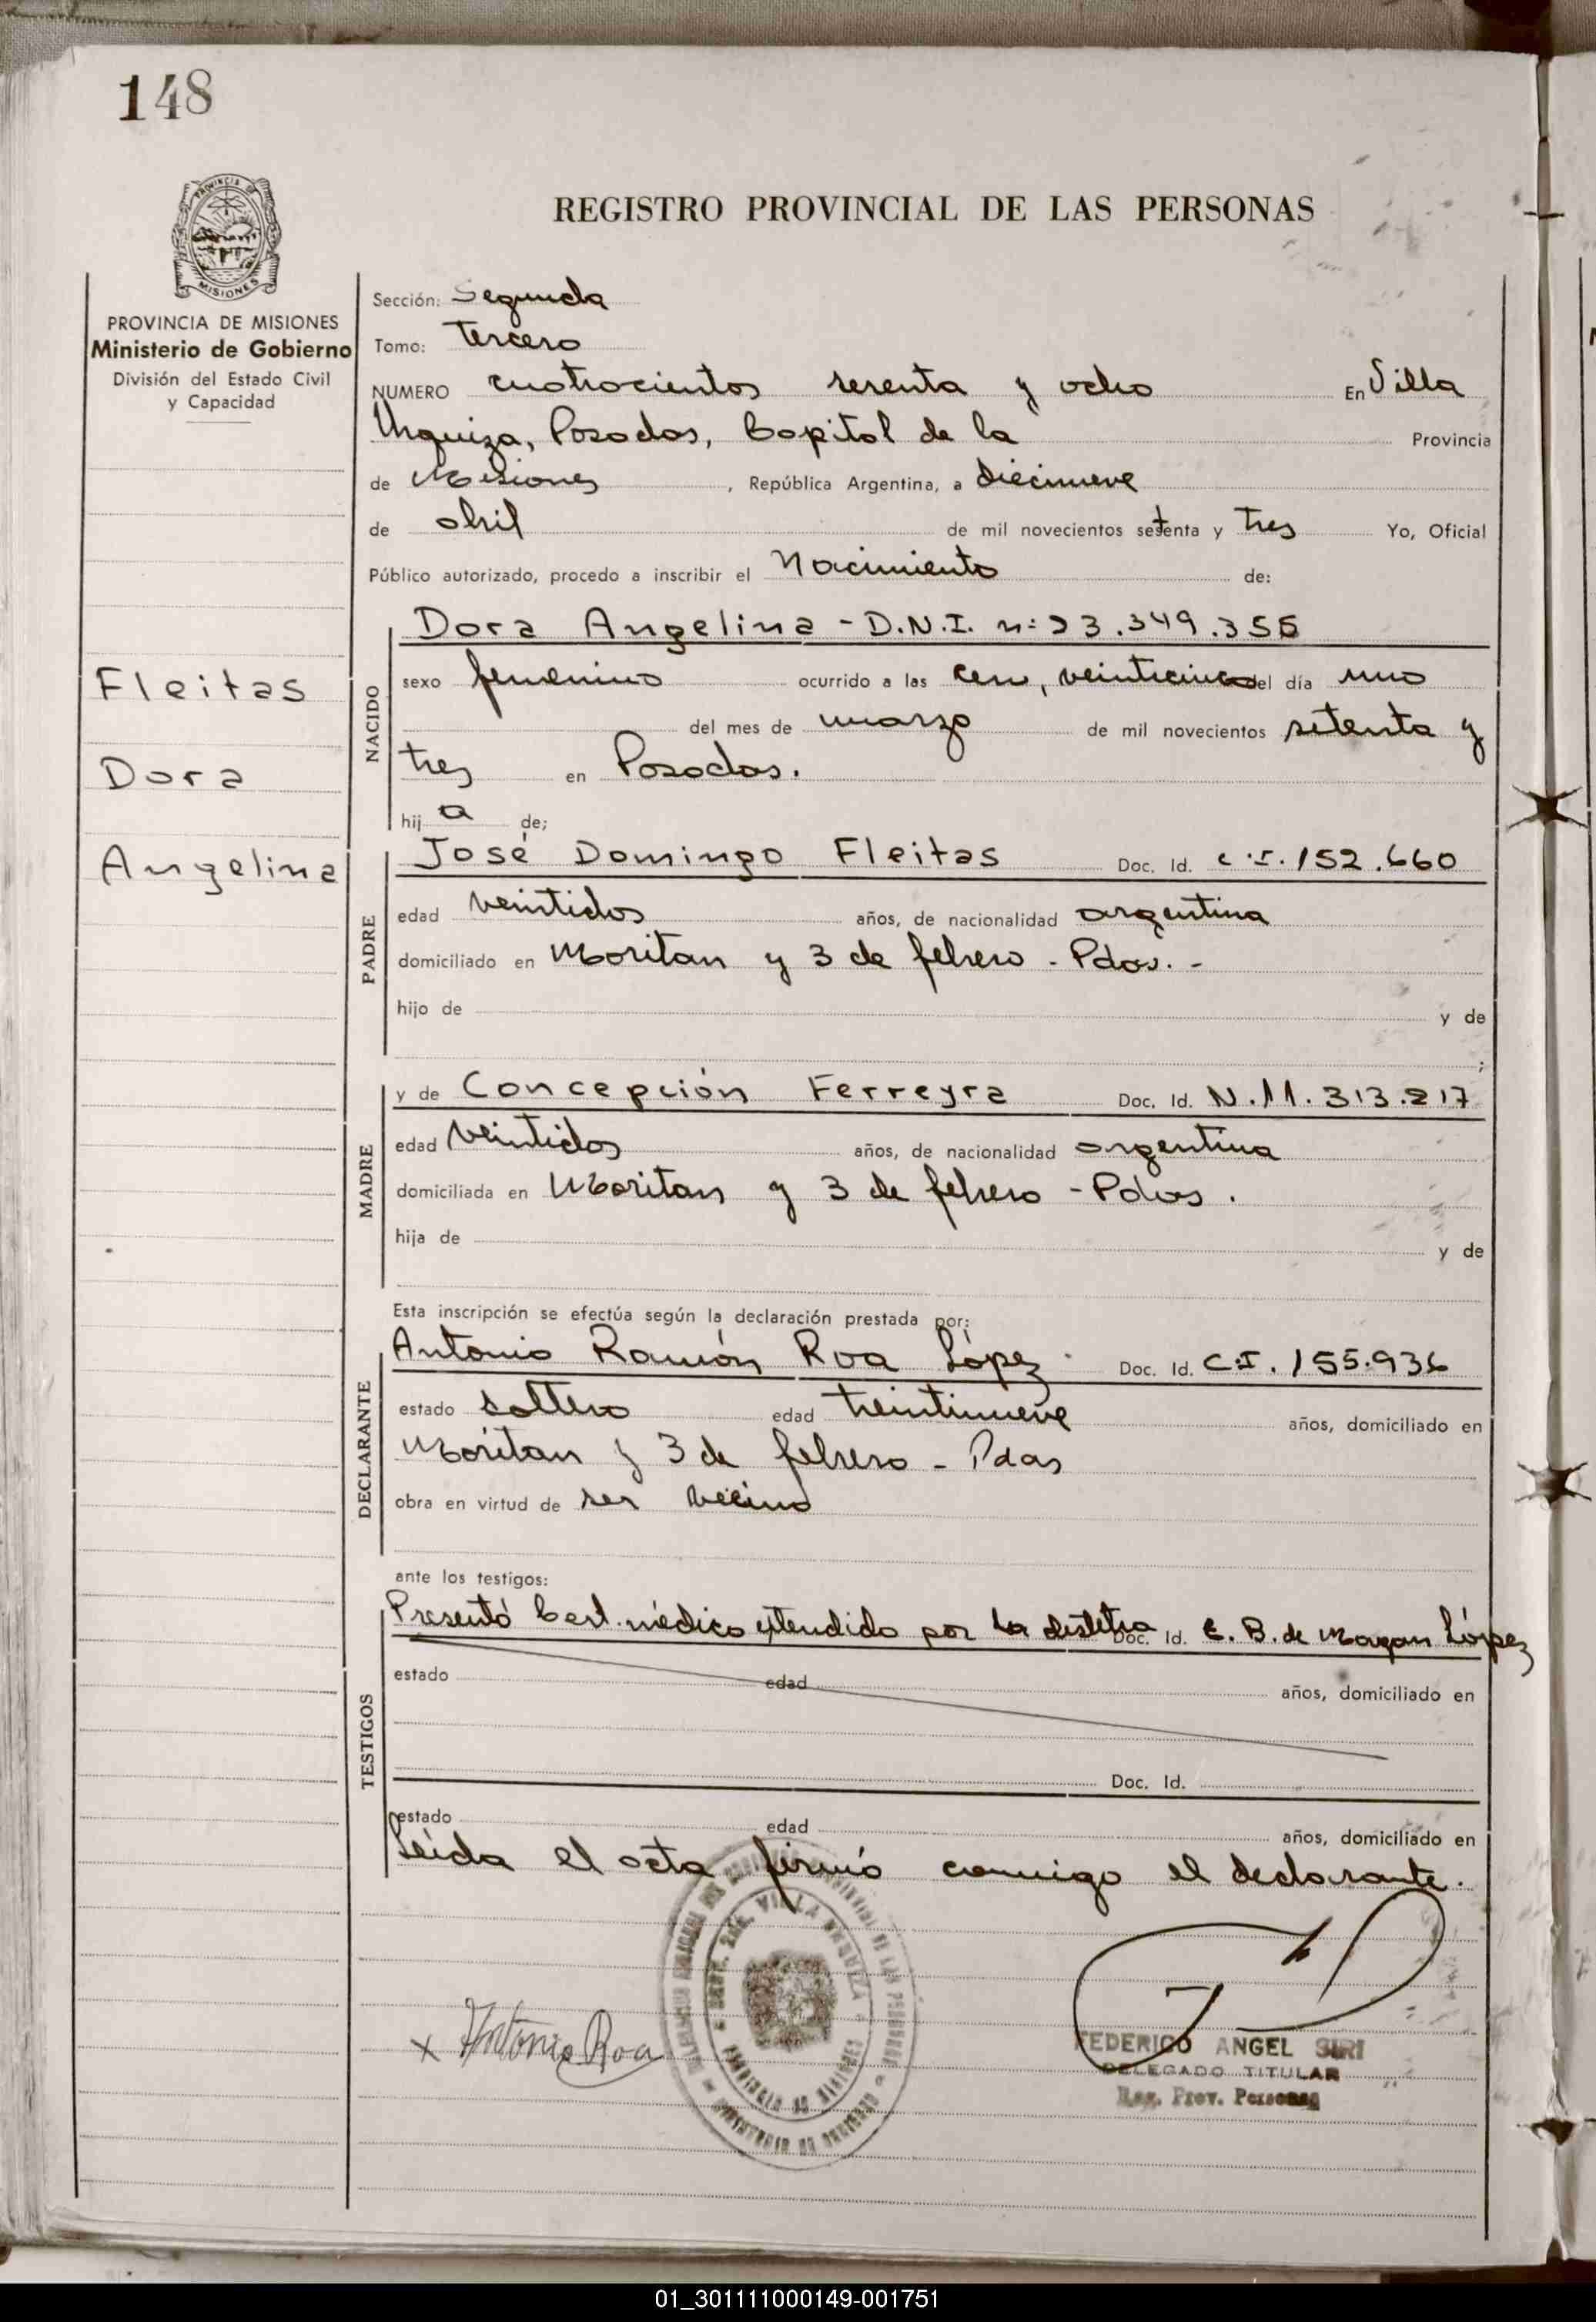 148
PROVINCIA DE
MISIONES
REGISTRO PROVINCIAL DE LAS PERSONAS
PROVINCIA DE MISIONES
Ministerio de Gobierno
División del Estado Civil
y Capacidad
Fleitas
Dora
Angelina
Sección: Segunda
Tomo: Tercero
NUMERO cuatrocientos sesenta y ocho En Villa
Urquiza, Posadas, Capital de la Provincia
de Misiones, República Argentina, a diecinueve
de abril de mil novecientos setenta y tres Yo, Oficial
Público autorizado, procedo a inscribir el Nacimiento de:
NACIDO
Dora Angelina - D.N.I. n: 23.349.355
sexo femenino ocurrido a las cero, veinticinco del día uno
del mes de marzo de mil novecientos setenta y
tres en Posadas.
hij a de;
PADRE
José Domingo Fleitas Doc. Id. C.I. 152.660
edad veintidos años, de nacionalidad argentina
domiciliado en Moritan y 3 de febrero - Pdas. -
hijo de y de
;
MADRE
y de Concepción Ferreyra Doc. Id. N. 11.313.217
edad veintidos años, de nacionalidad argentina
domiciliada en Moritan y 3 de febrero - Pdas.
hija de y de
Esta inscripción se efectúa según la declaración prestada por:
DECLARANTE
Antonio Ramón Roa López Doc. Id. C.I. 155.936
estado soltero edad treintinueve años, domiciliado en
Moritan y 3 de febrero - Pdas
obra en virtud de ser vecino
ante los testigos:
TESTIGOS
Presentó Cert. médico extendido por la Doc. Id. E. B. de López
estado edad años, domiciliado en
Doc. Id.
estado edad años, domiciliado en
Leída el acta firmó conmigo el declarante.
x Antonio Roa
VILLA URQUIZA
PROVINCIA DE MISIONES
MINISTERIO DE GOBIERNO
FEDERICO ANGEL SIRI
DELEGADO TITULAR
Reg. Prov. Personas
01_301111000149-001751